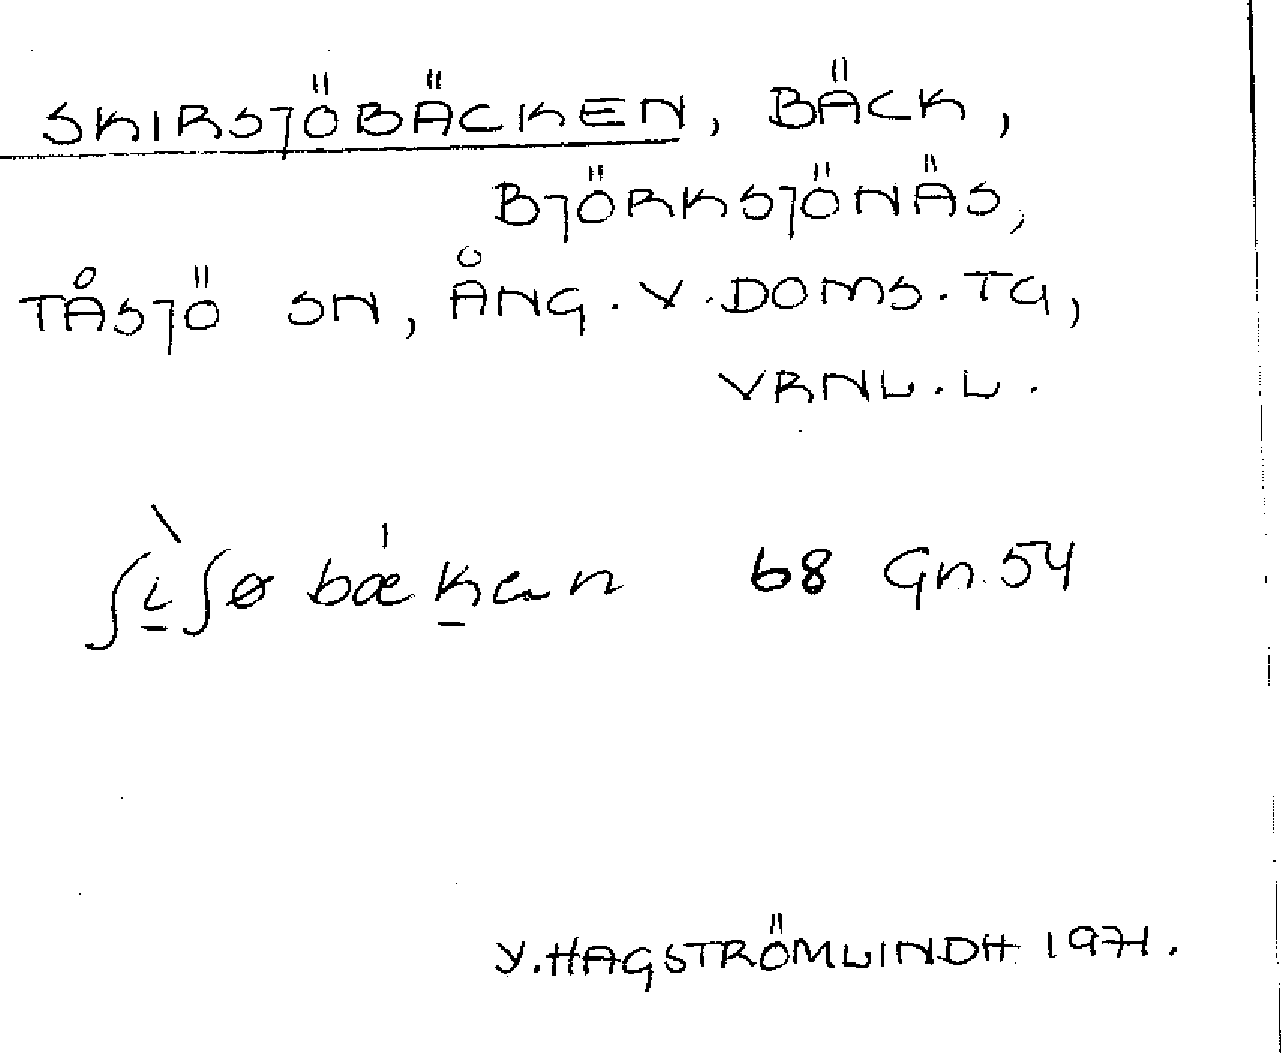 SKIRSJÖBÄCKEN, BÄCK,
BJÖRKSJÖNÄS,
TÅSJÖ SN, ÅNG. V. DOMS. TG,
VRNL. L.
ʃi̱ʃø bæḵen 68 Gn. 54
Y. HAGSTRÖMLINDH 1971.